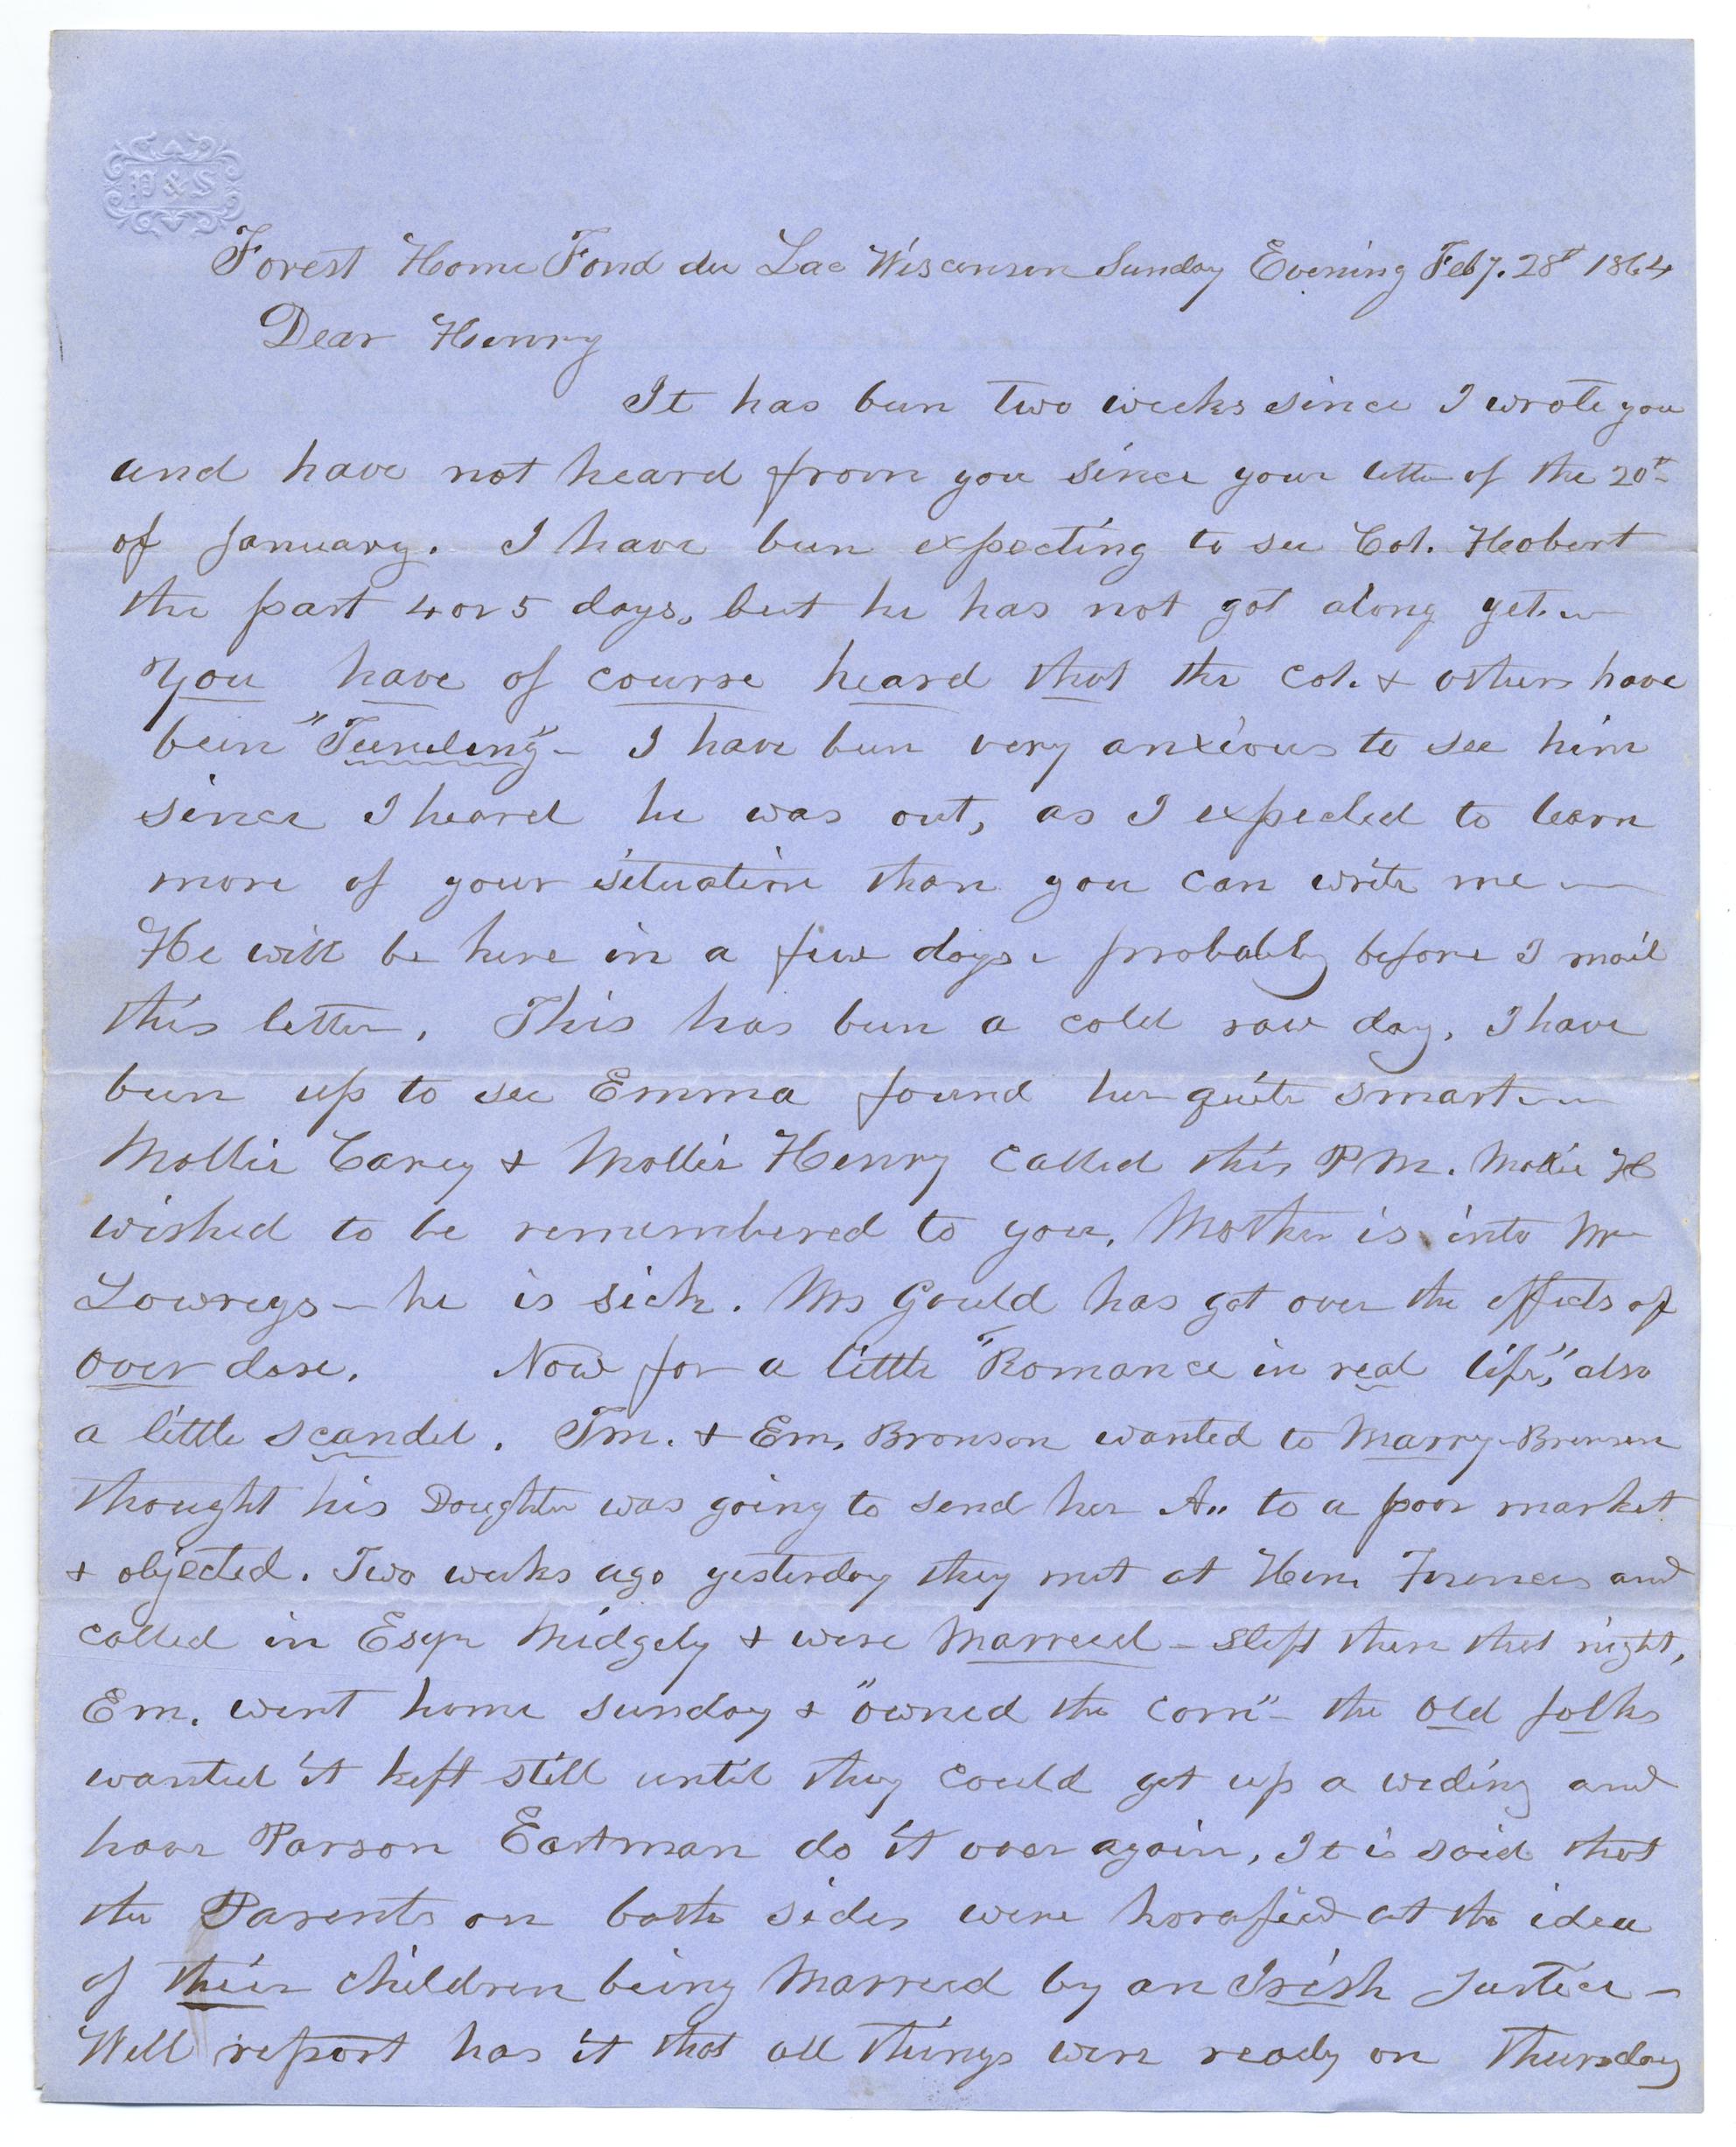 P & S
Forest Home Fond du Lac Wisconsin Sunday Evening Feby. 28t 1864
Dear Henry
It has been two weeks since I wrote you
and have not heard from you since your letter of the 20t
of January. I have been expecting to see Col. Hobert
the past 4 or 5 days, but he has not got along yet.
You have of course heard that the Col. & others have
been "Tuneling" - I have been very anxious to see him
since I heard he was out, as I expected to learn
more of your situation than you can write me —
He will be here in a few days - probably before I mail
this letter. This has been a cold raw day, I have
been up to see Emma found her quite smart —
Mollie Carey & Mollie Henry called this P.M. Mollie H
wished to be remembered to you. Mother is into Mr
Lowreys - he is sick. Mrs Gould has got over the effects of
over dose. Now for a little "Romance in real life," also
a little scandel. Tm. & Em. Bronson wanted to Marry - Bronson
thought his Doughter was going to send her A,, to a poor market
& objected. Two weeks ago yesterday they met at and
called in Esqr Midgely & were Marreed - slept there that night,
Em. went home sunday & "owned the corn" - the old folks
wanted it kept still until they could get up a weding and
have Parson Eastman do it over again, It is said that
the Parents on both sides were horafied at the idea
of their children being Marreed by an Irish Justice -
Well report has it that all things were ready on Thursday